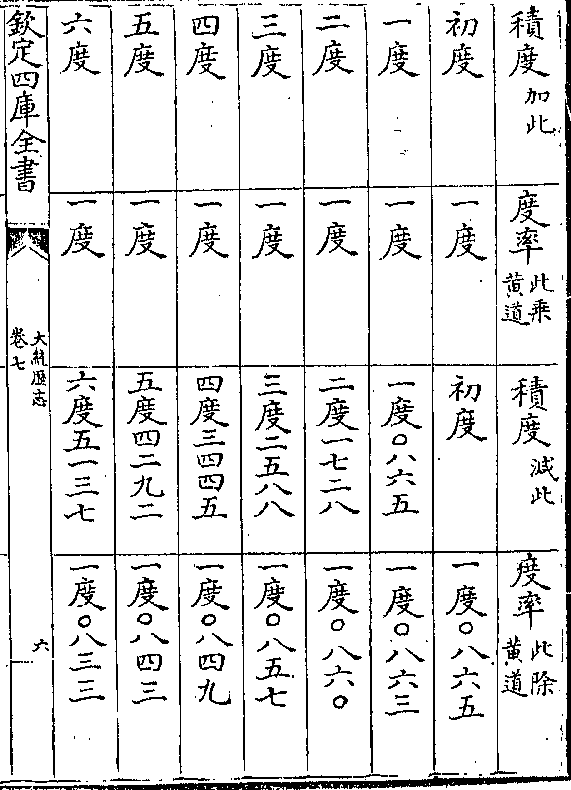 積度加此 度率此乗黃道 積度減此 度率此除黃道
初度 一度 初度 一度○八六五
一度 一度 一度○八六五 一度○八六三
二度 一度 二度一七二八 一度○八六○
三度 一度 三度二五八八 一度○八五七
四度 一度 四度三四四五 一度○八四九
五度 一度 五度四二九二 一度○八四三
六度 一度 六度五一三七 一度○八三三
欽定四庫全書
大統厯志
卷七
六